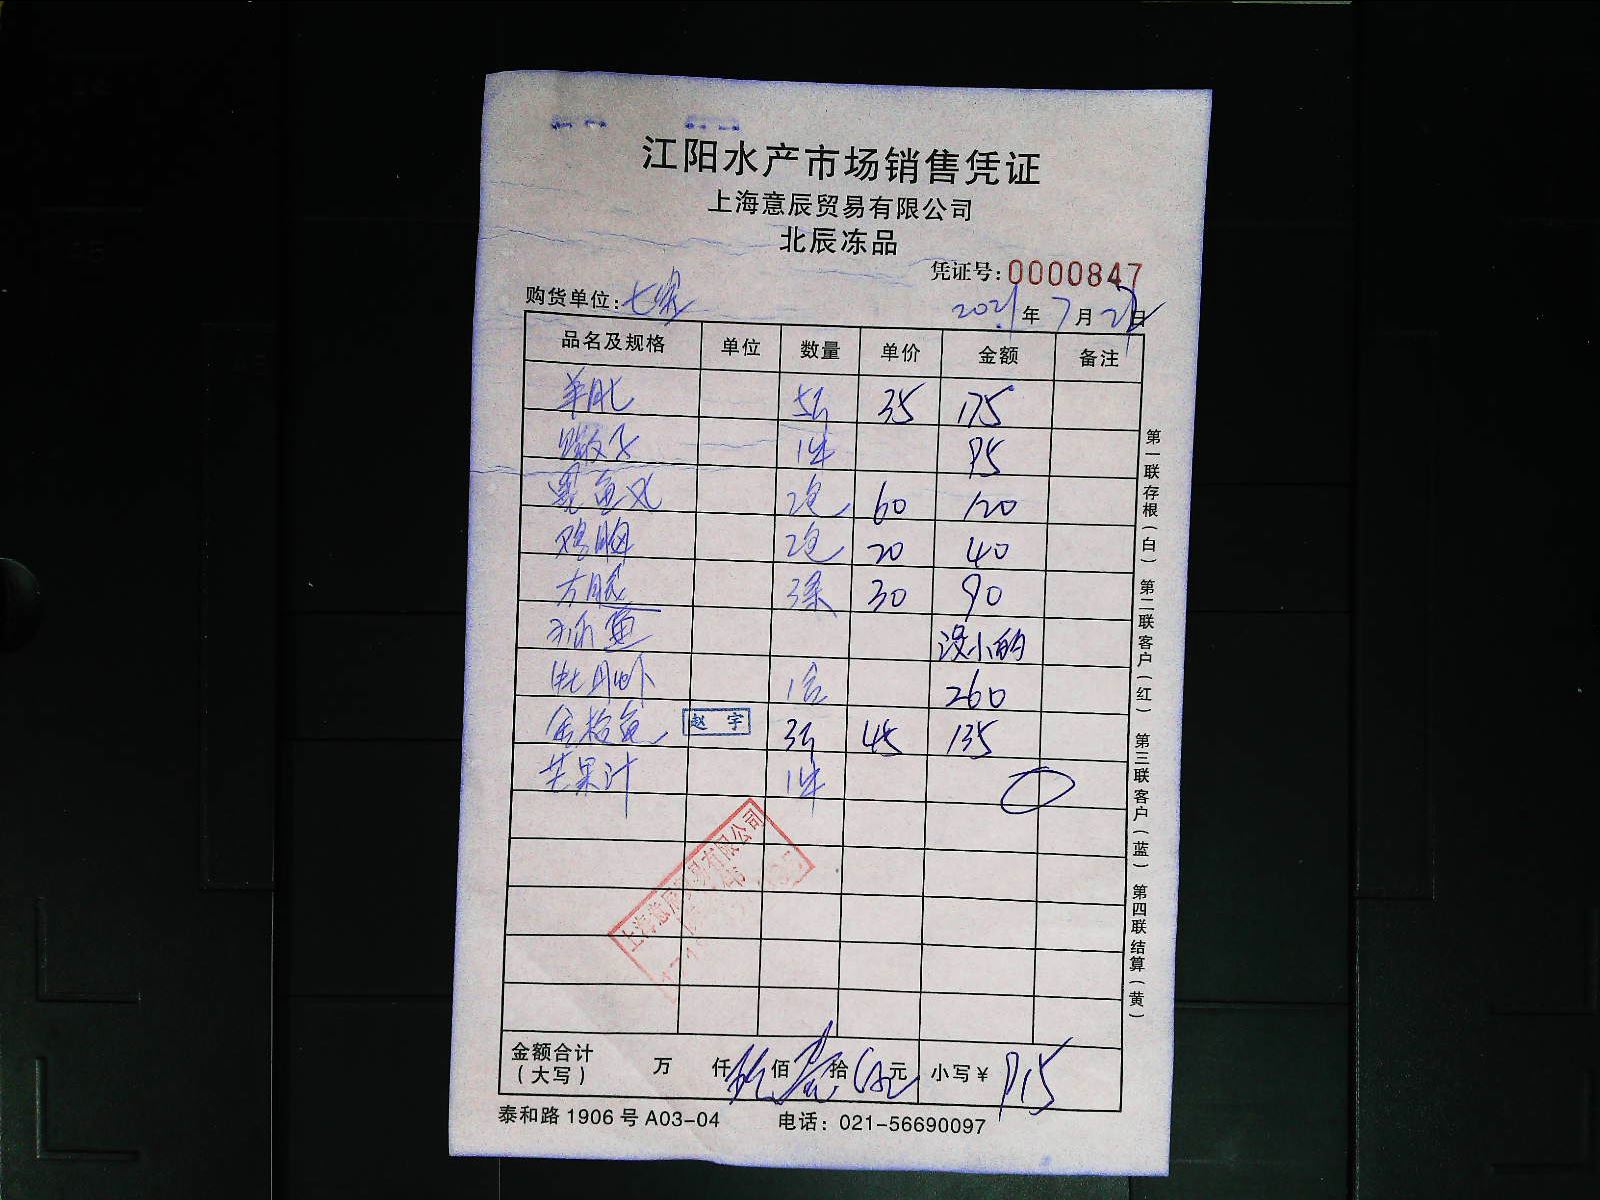 江阳水产市场销售凭证
上海意辰贸易有限公司
北辰冻品
凭证号:0000847
购货单位:七
2021年7月2日
品名及规格 单位 数量 单价 金额 备注
羊肚 5斤 35 175
1件 95
黑鱼片 2包 60 120
鸡胸 2包 20 40
方腿 3条 30 90
鱼 没小的
牡丹虾 1盒 260
金枪鱼 赵宇 3斤 45 135
芒果汁 1件
上海意辰贸易有限公司
金额合计
(大写) 万 仟 玖佰 壹拾 伍元 小写¥ 915
泰和路1906号A03-04 电话:021-56690097
第一联存根(白) 第二联客户(红) 第三联客户(蓝) 第四联结算(黄)